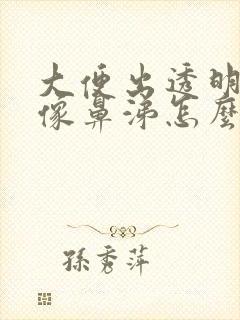 大便出透明
像鼻涕怎麼
孫秀萍